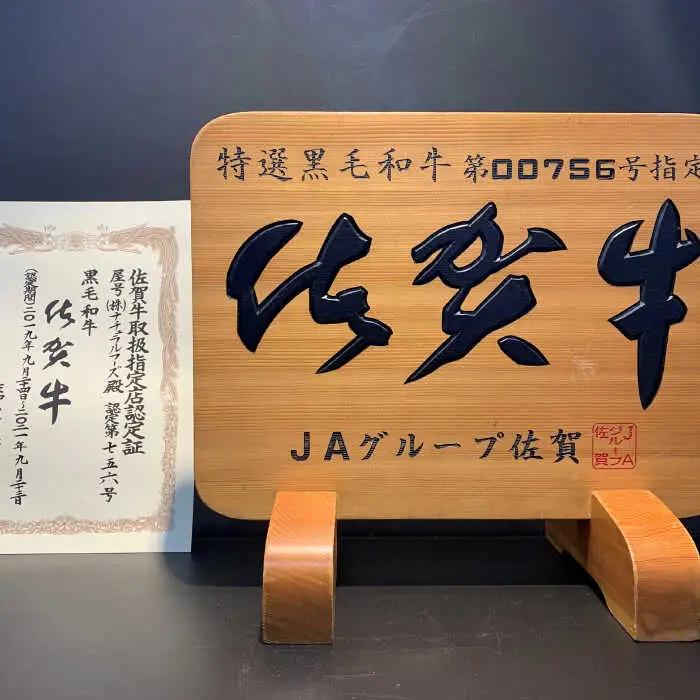 佐賀牛取扱指定店認定証
屋号(株)ナチュラルフーズ殿 認定第七五六号
黒毛和牛
佐賀牛
(認定期間)二〇一九年九月二十四日~二〇二一年九月二十三日
特選黒毛和牛 第00756号指定
佐賀牛
JAグループ佐賀
JA
グループ
佐賀